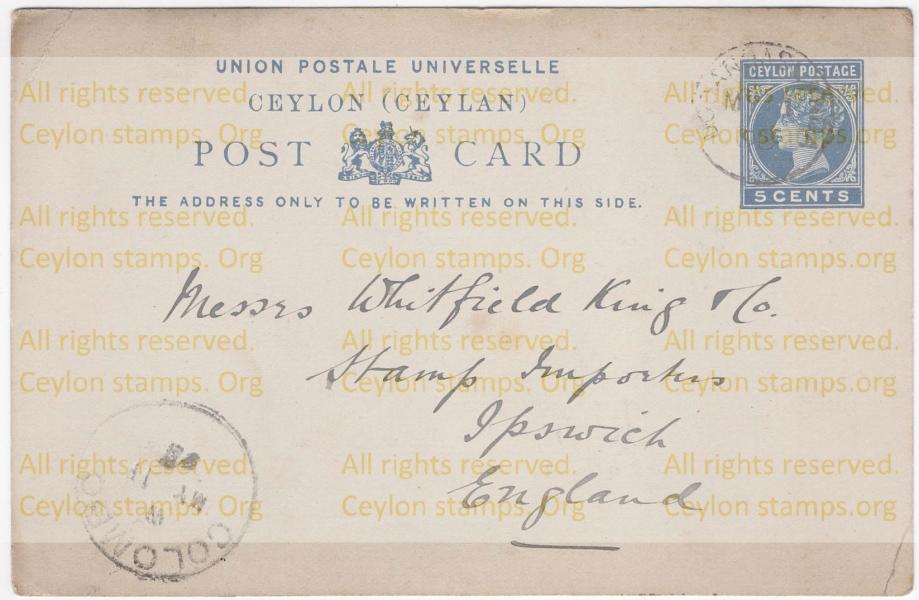 UNION POSTALE UNIVERSELLE
CEYLON (CEYLAN)
POST CARD
THE ADDRESS ONLY TO BE WRITTEN ON THIS SIDE.
CEYLON POSTAGE
5 CENTS
Messrs Whitfield King & Co.
Stamp Importers
Ipswich
England
COLOMBO
All rights reserved. All rights reserved. All rights reserved.
Ceylon stamps. Org Ceylon stamps. Org Ceylon stamps.org
All rights reserved. All rights reserved. All rights reserved.
Ceylon stamps. Org Ceylon stamps. Org Ceylon stamps.org
All rights reserved. All rights reserved. All rights reserved.
Ceylon stamps. Org Ceylon stamps. Org Ceylon stamps.org
All rights reserved. All rights reserved. All rights reserved.
Ceylon stamps. Org Ceylon stamps. Org Ceylon stamps.org